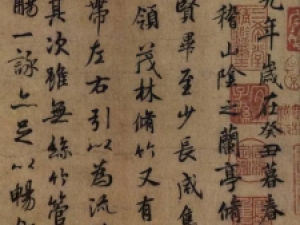 九年歲在癸丑暮春
稽山陰之蘭亭脩
賢畢至少長咸集
領茂林脩竹又有
帶左右引以為流
其次雖無絲竹管
觴一詠亦足以暢